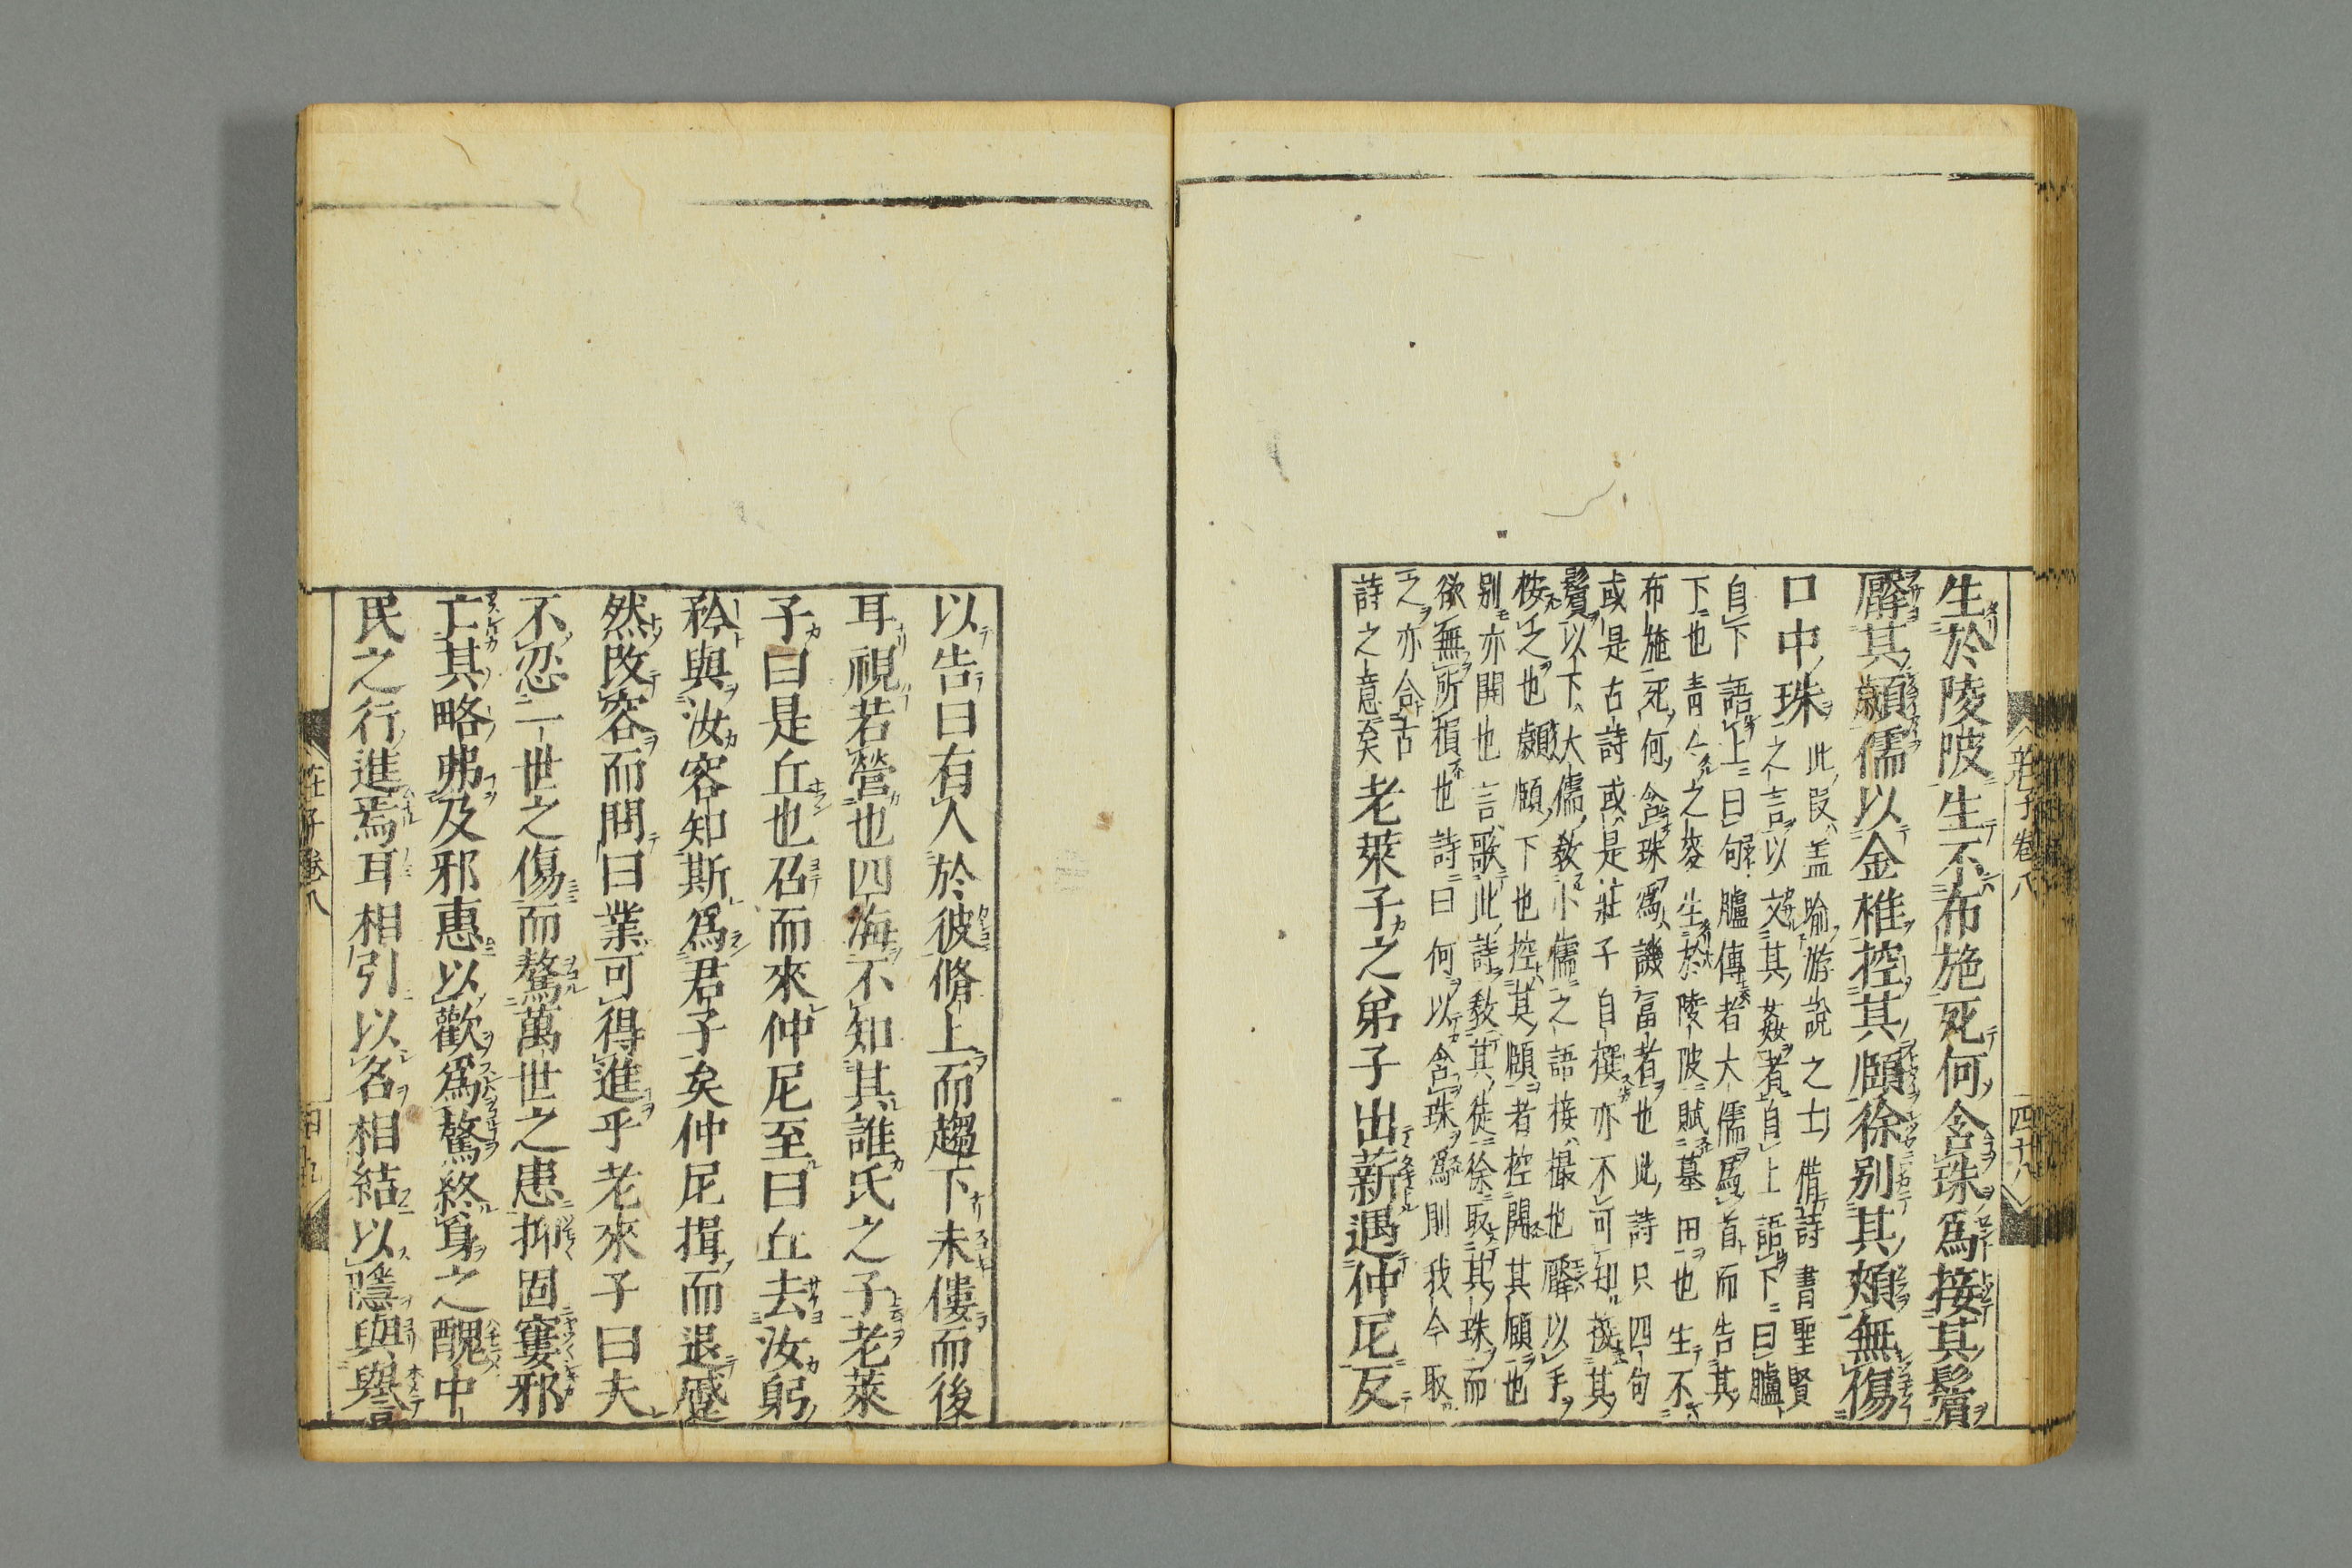 生於陵陂生不布施死何含珠爲接其鬢
壓其顪儒以金椎控其頤徐别其頰無傷
口中珠
此段盖喻游說之士借詩書聖賢
之言以文其姦者自上語下曰臚
自下語上曰句臚傳者大儒爲首而告其
下也青々之麥生於陵陂賦墓田也生不
布施死何含珠爲譏富者也此詩只四句
或是古詩或是莊子自撰亦不可知接其
鬢以下大儒教小儒之語接撮也壓以手
按之也顪頤下也控其頤者控開其頤也
别亦開也言歌此詩教其徒徐取其珠而
欲無所損也詩曰何以含珠爲則我今取
之亦合古
詩之意矣
老萊子之弟子出薪遇仲尼反
莊子卷八
四十八
以告曰有人於彼脩上而趨下末僂而後
耳視若營也四海不知其誰氏之子老萊
子曰是丘也召而來仲尼至曰丘去汝躬
矜與汝容知斯爲君子矣仲尼揖而退蹙
然改容而問曰業可得進乎老來子曰夫
不忍一世之傷而驁萬世之患抑固窶邪
亡其略弗及邪惠以歡爲驁終身之醜中
民之行進焉耳相引以名相結以隱與譽
莊子卷八
四十九